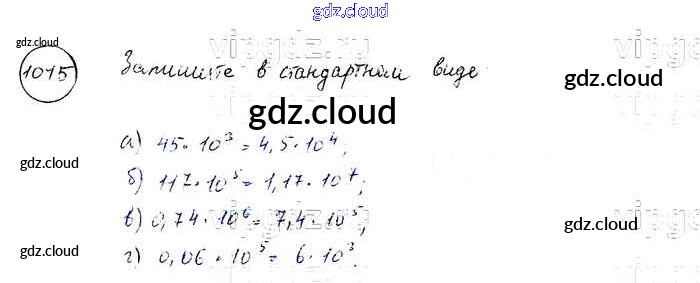 gdz.cloud
gdz.cloud
1015 Запишите в стандартном виде
gdz.cloud
gdz.cloud
а) 45·10³ = 4,5·10⁴;
gdz.cloud
б) 117·10⁵ = 1,17·10⁷;
в) 0,74·10⁶ = 7,4·10⁵;
gdz.cloud
г) 0,06·10⁵ = 6·10³.
gdz.cloud